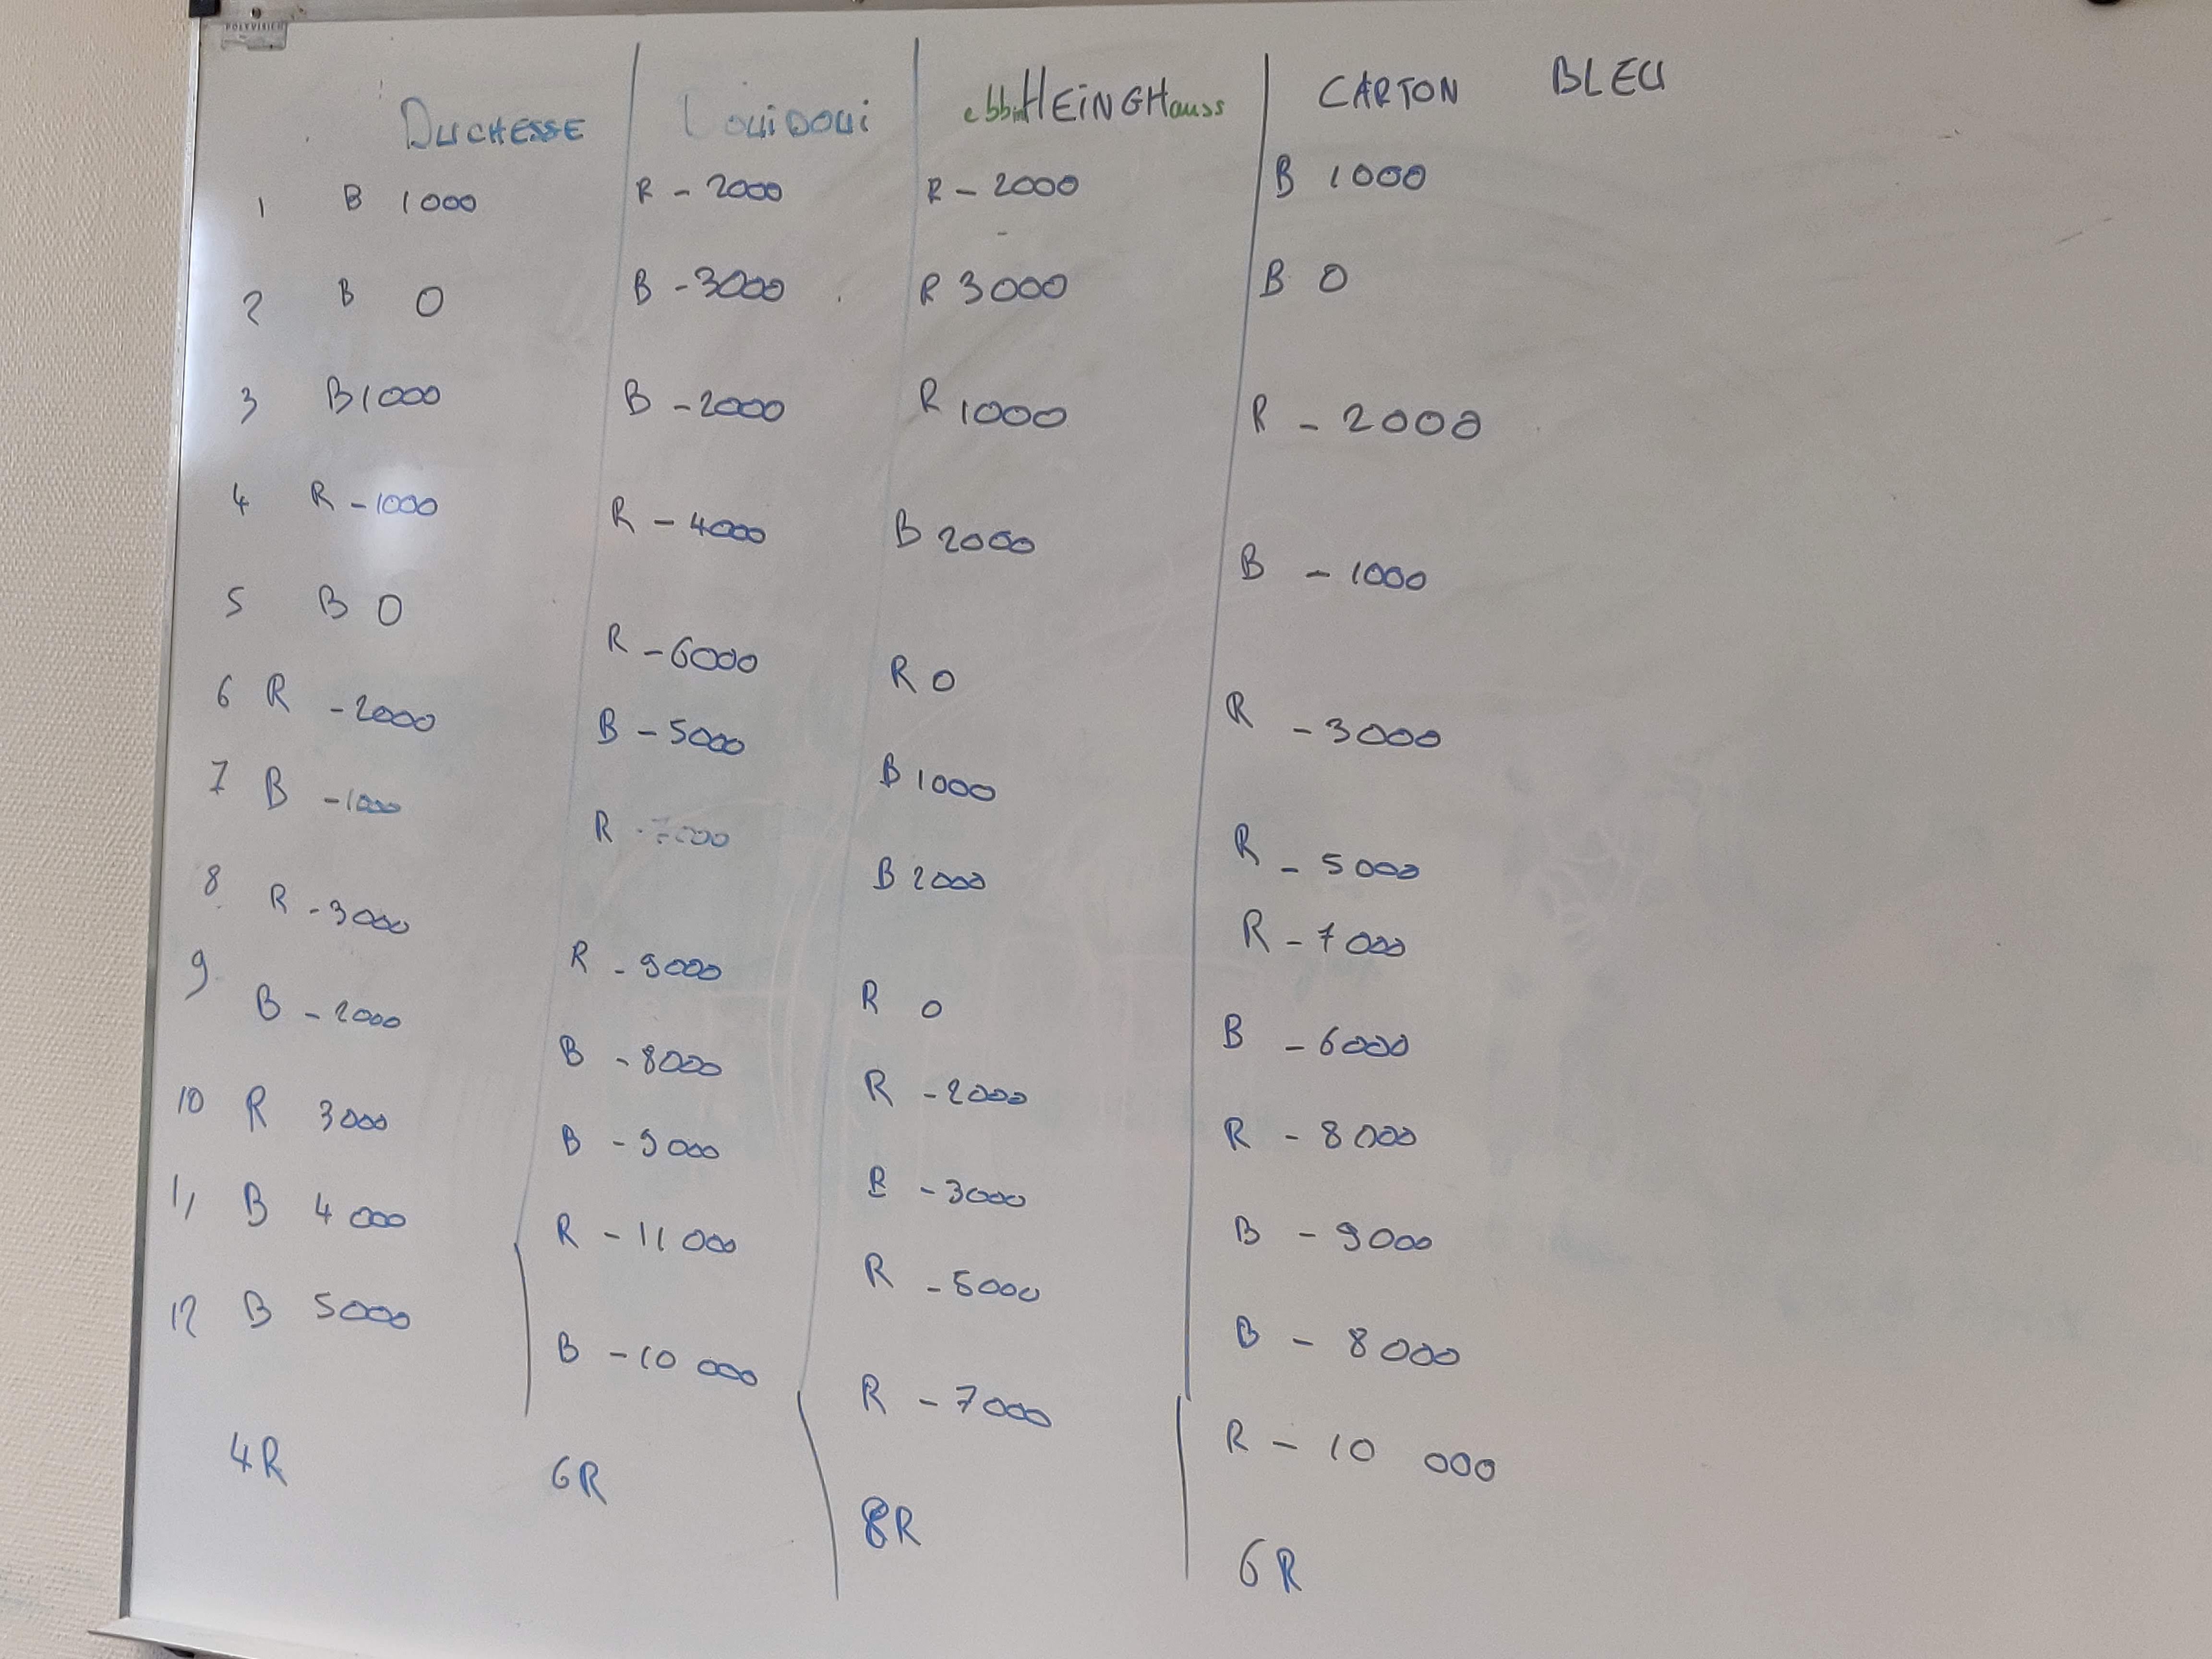 POLYVISION
DUCHESSE LOUIDOUI ebbinHEiNGHauss CARTON BLEU
1 B 1000 R - 2000 R - 2000 B 1000
2 B 0 B - 3000 R 3000 B 0
3 B 1000 B - 2000 R 1000 R - 2000
4 R - 1000 R - 4000 B 2000 B - 1000
5 B 0 R - 6000 R 0 R - 3000
6 R - 2000 B - 5000 B 1000 R - 5000
7 B - 1000 R B 2000 R - 7000
8 R - 3000 R - 9000 R 0 B - 6000
9 B - 2000 B - 8000 R - 2000 R - 8000
10 R 3000 B - 9000 - 3000 B - 9000
11 B 4000 R - 11 000 R - 5000 B - 8000
12 B 5000 B - 10 000 R - 7000 R - 10 000
4R 6R 8R 6R